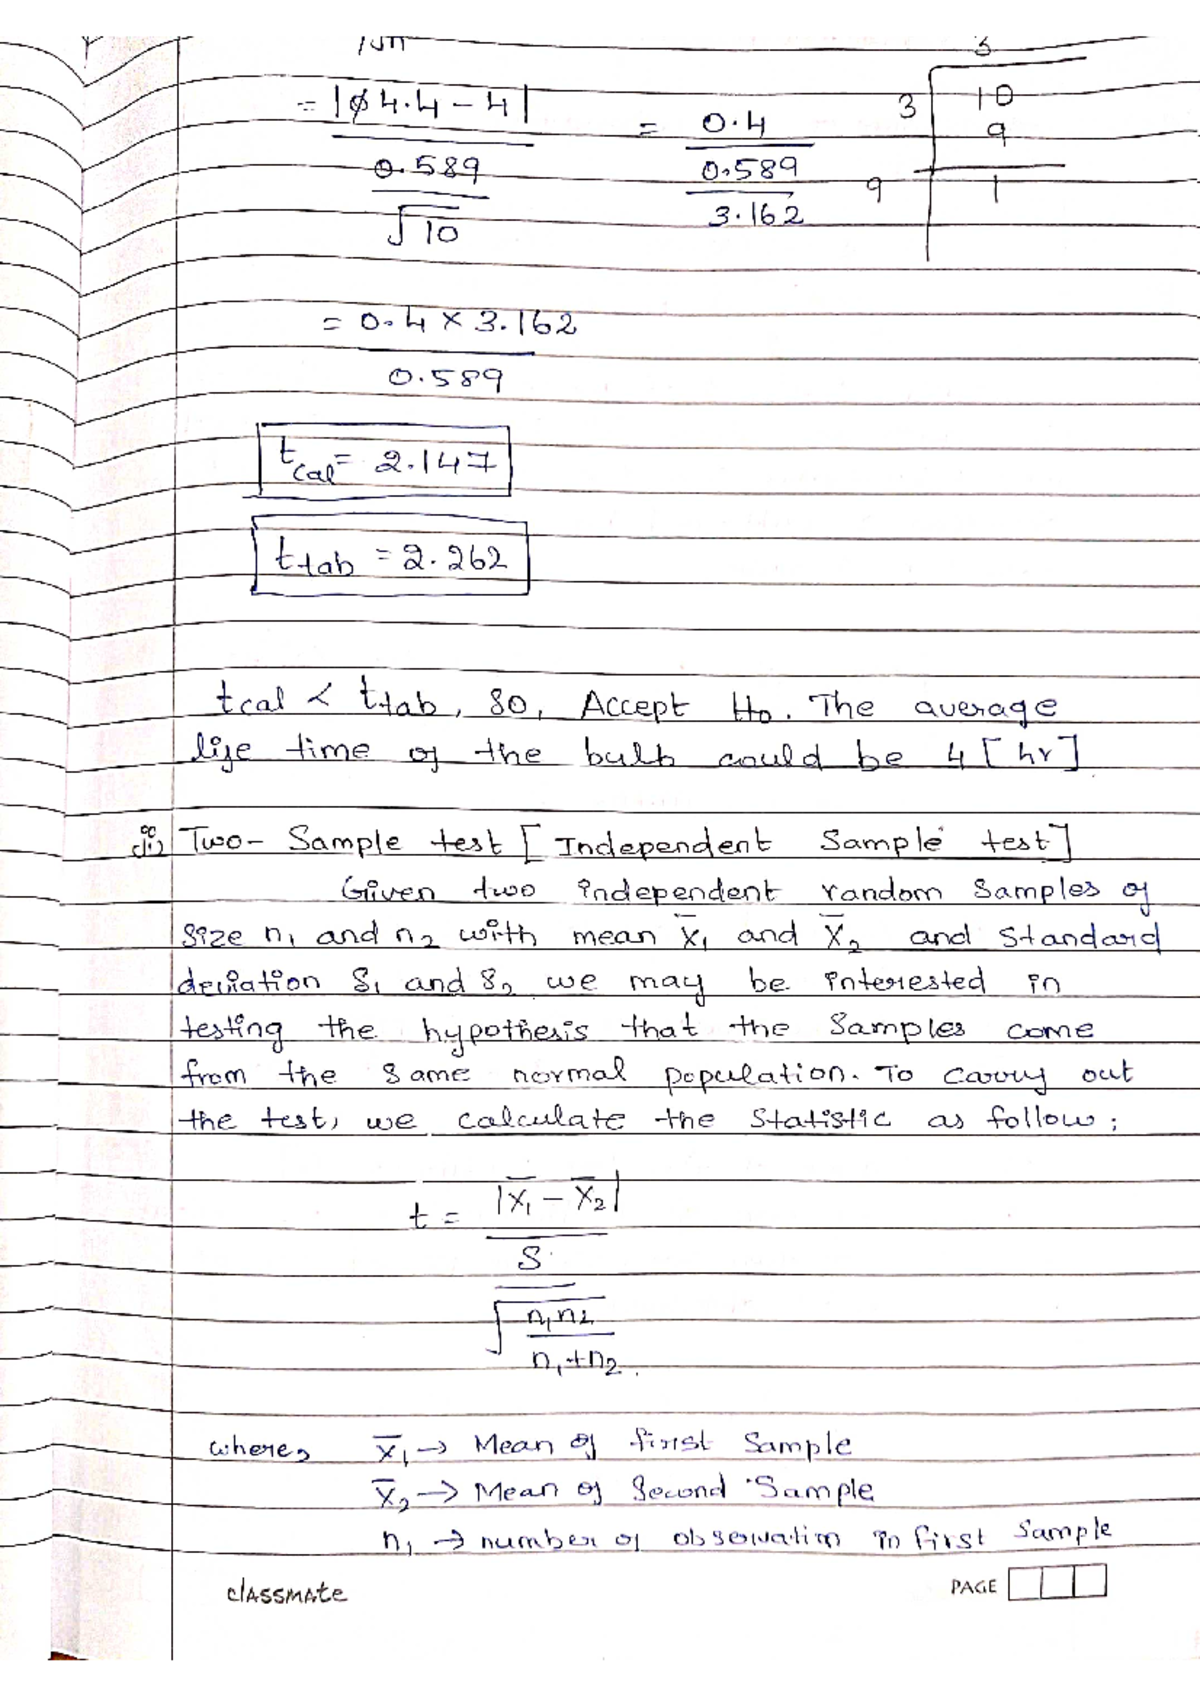 = |4.4 - 4|
0.589
√10
= 0.4
0.589
3.162
3
3 10
9
9 1
= 0.4 × 3.162
0.589
tcal = 2.147
ttab = 2.262
tcal < ttab, so, Accept H0. The average
life time of the bulb could be 4 [hr]
ii) Two-Sample test [Independent Sample test]
Given two independent random samples of
size n1 and n2 with mean x̄1 and x̄2 and standard
deviation S1 and S2 we may be interested in
testing the hypothesis that the samples come
from the same normal population. To carry out
the test, we calculate the statistic as follow;
t = |x̄1 - x̄2|
S
√ n1n2
n1+n2.
where, x̄1 → Mean of first Sample
x̄2 → Mean of Second Sample
n1 → number of observation in first sample
classmate
PAGE